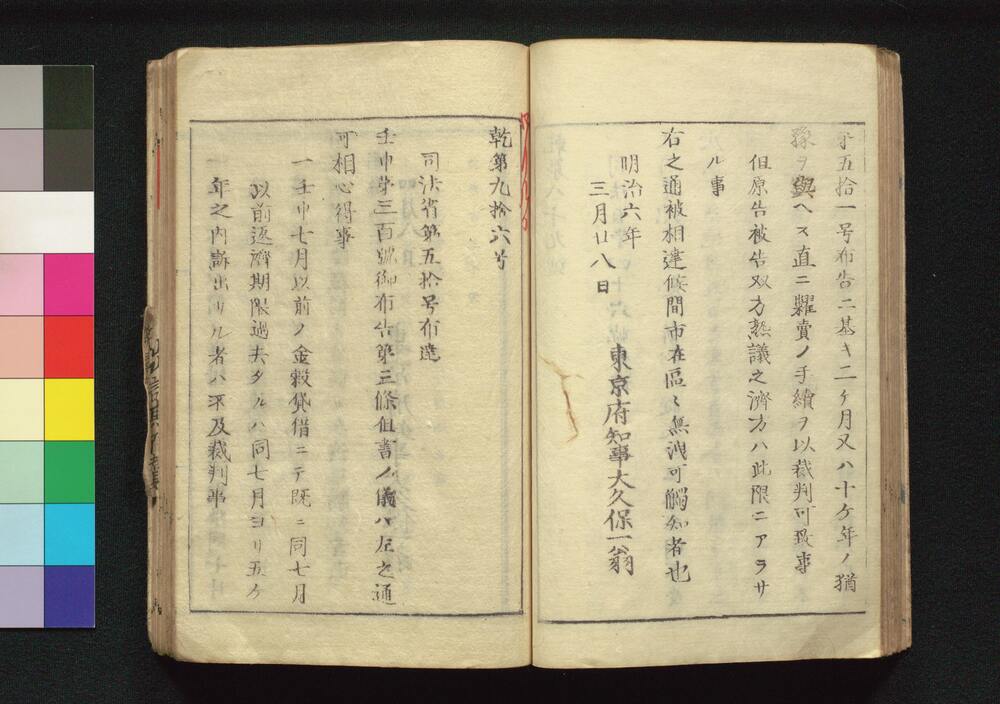 第五拾一号布告ニ基キ二ケ月又ハ十ケ年ノ猶
豫ヲ與ヘス直ニ糶賣ノ手續ヲ以裁判可致事
但原告被告双方熟議之濟方ハ此限ニアラサ
ル事
右之通被相達候間市在區々無洩可觸知者也
明治六年
三月廿八日
東京府知事大久保一翁
乾第九拾六号
司法省第五拾号布達
壬申第三百號御布告第三條但書ノ儀ハ左之通
可相心得事
一壬申七月以前ノ金穀貸借ニテ既ニ同七月
以前返濟期限過去タルハ同七月ヨリ五ケ
年之内訴出サル者ハ不及裁判事